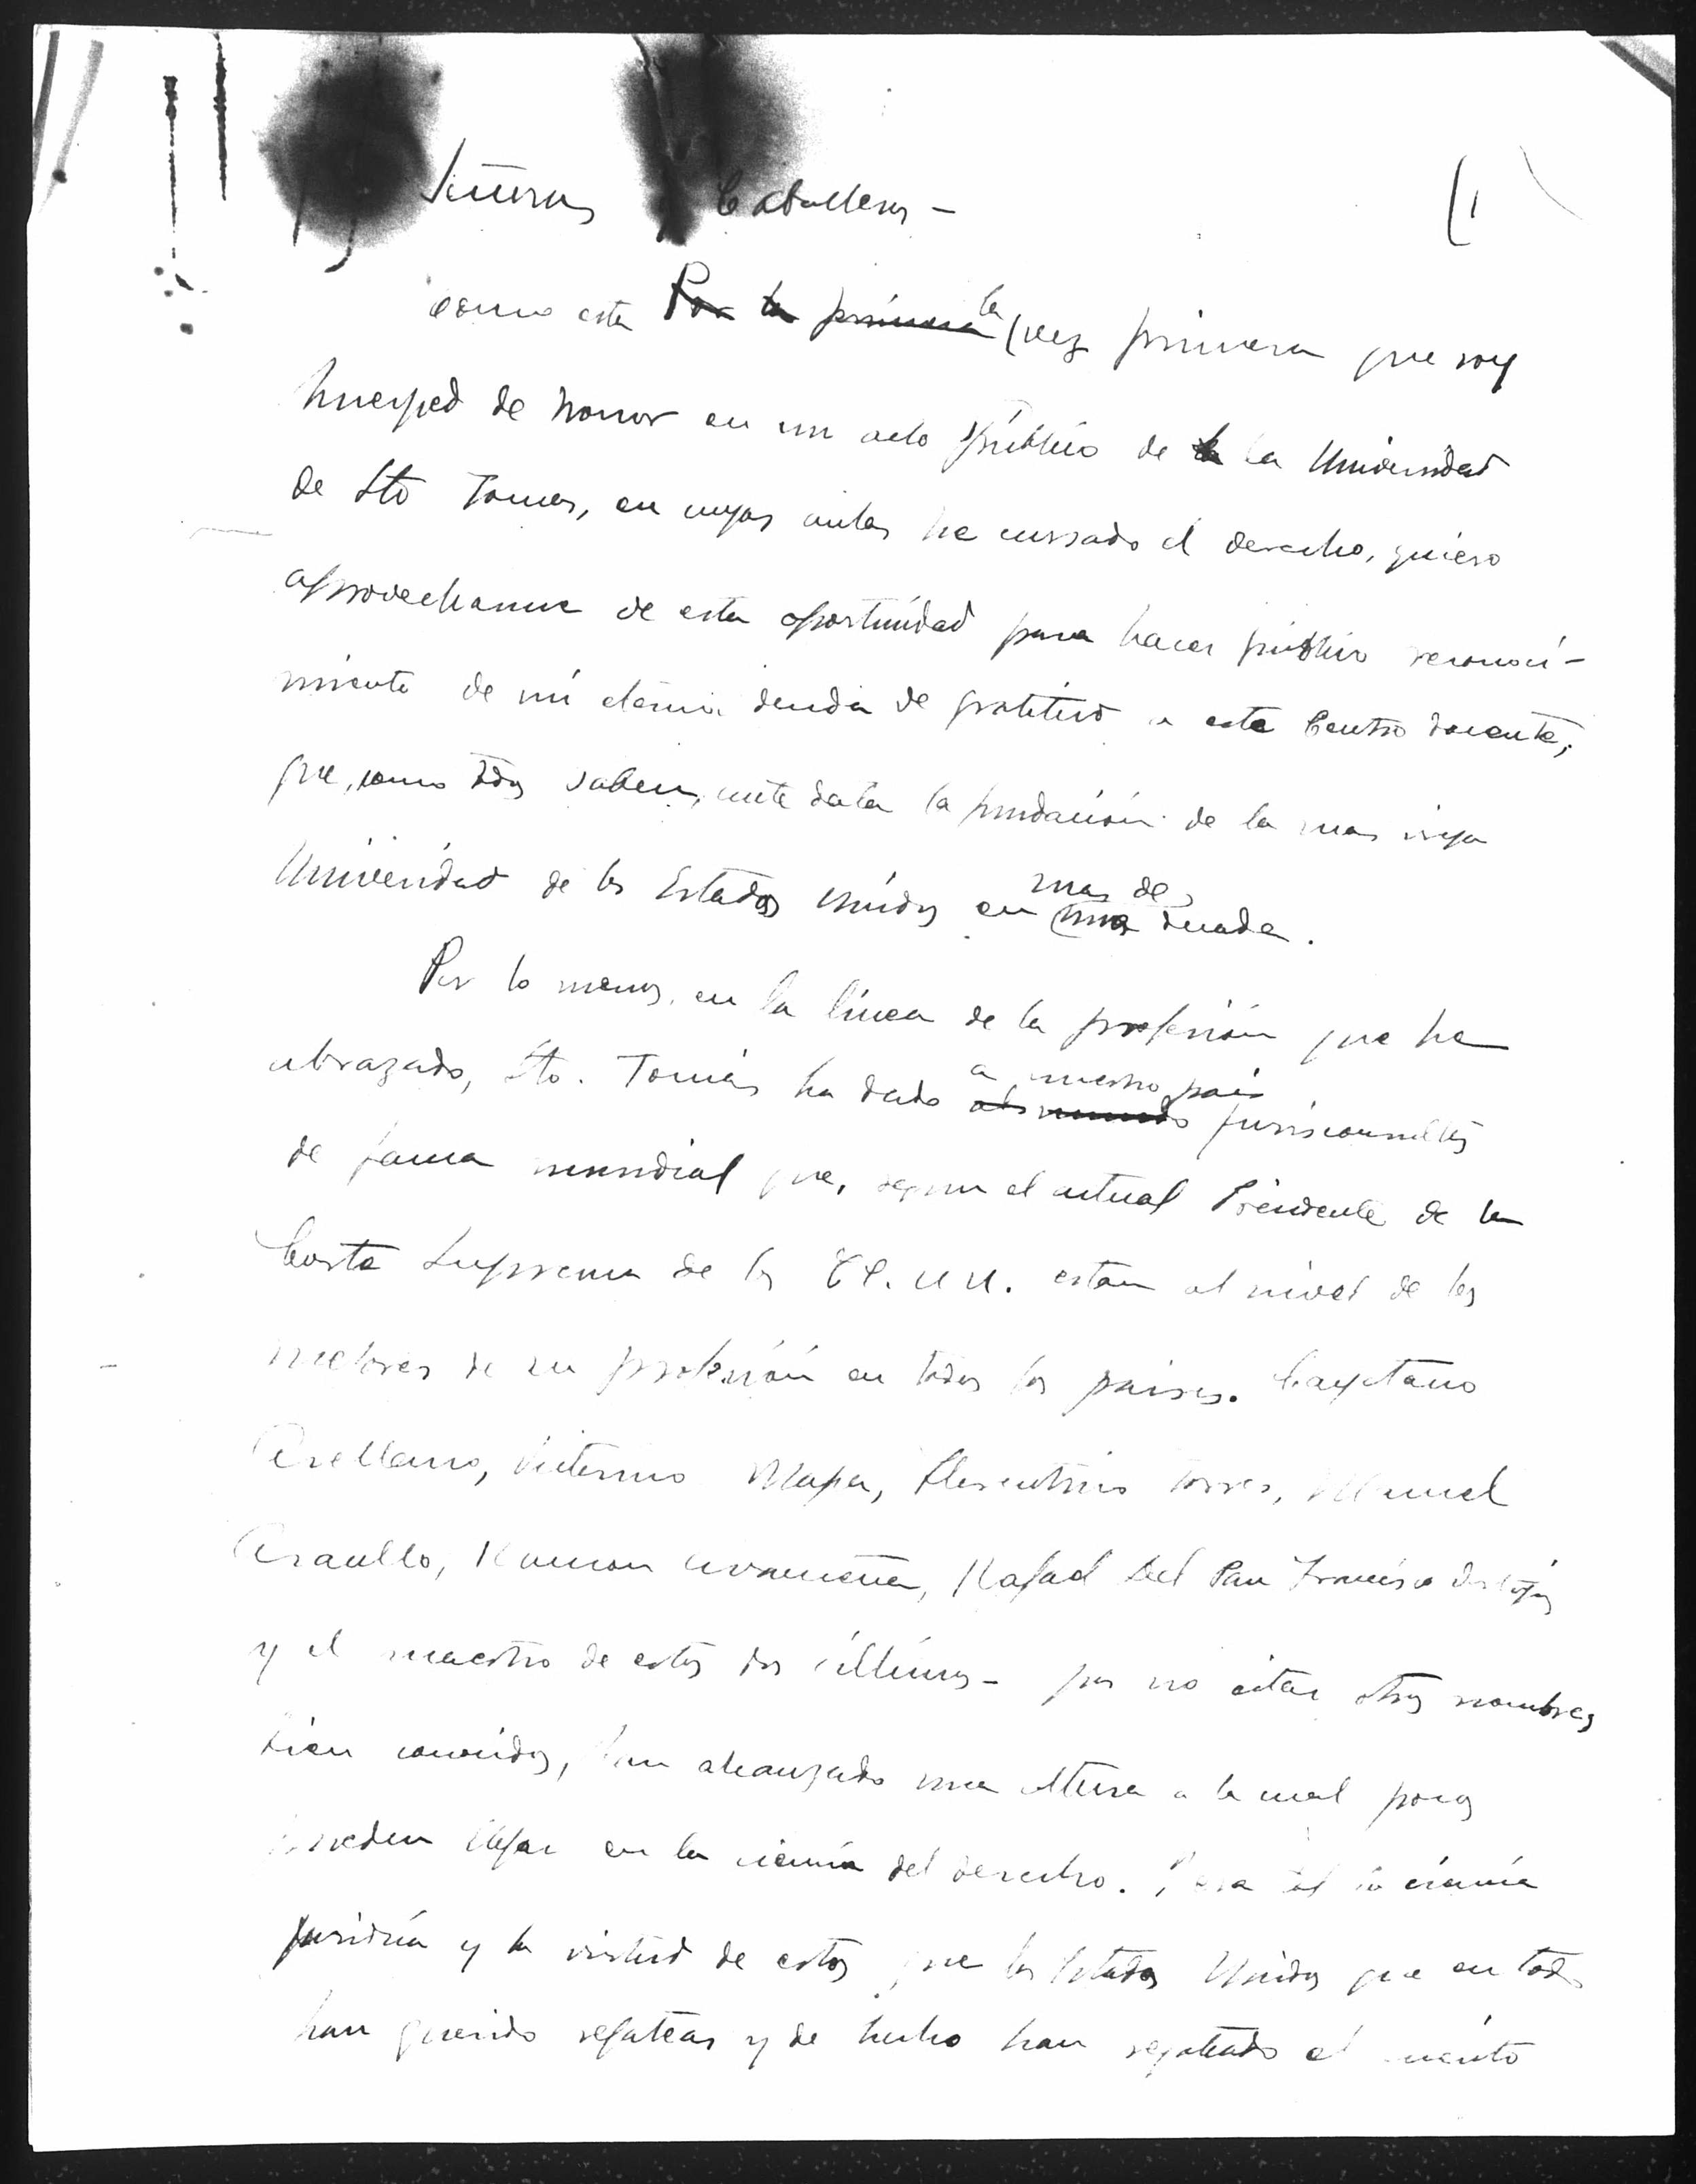 Señoras y Caballeros – (1
Como esta ~~Por la primera~~ la vez primera que soy
huesped de honor en un acto público de la Universidad
de Sto Tomas, en cuyas aulas he cursado el derecho, quiero
aprovecharme de esta oportunidad para hacer público reconoci-
miento de mi eterna deuda de gratitud a este Centro docente,
que, como todos saben, ante data la fundación de la mas vieja
Universidad de los Estados Unidos en mas de una decada.
Por lo menos, en la línea de la profesión que he
abrazado, Sto. Tomás ha dado ~~al mundo~~ a nuestro pais jurisconsultos
de fama mundial que, segun el actual Presidente de la
Corte Suprema de los EE. UU. estan al nivel de los
mejores de su profesión en todos los paises. Cayetano
Arellano, Victorino Mapa, Florentino Torres, Manuel
Araullo, Ramon Avanceña, Rafael Del Pan Francisco
y el maestro de estos dos últimos – por no citar otros nombres
bien conocidos, han alcanzado una altura a la cual pocos
pueden llegar en la ciencia del derecho. Era tal la ciencia
juridica y la virtud de estos que los Estados Unidos que en todo
han querido regatear y de hecho han regateado el mérito